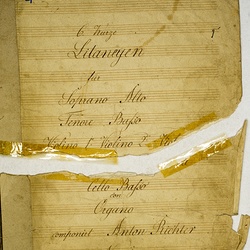 6 Kurze
Litaneyen
für
Soprano Alto
Tenore Basso
Violino 1 Violino 2
Cello Basso
con
Organo
componirt Anton Richter